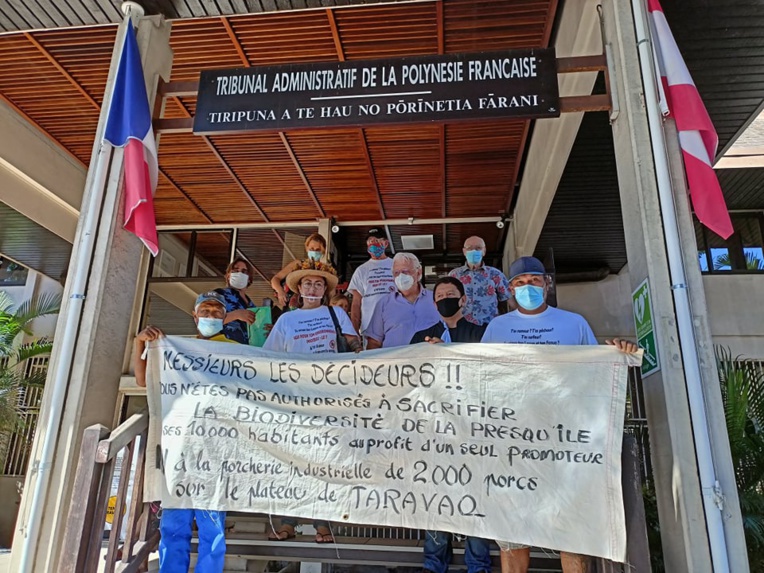 TRIBUNAL ADMINISTRATIF DE LA POLYNESIE FRANCAISE
TIRIPUNA A TE HAU NO PŌRĪNETIA FĀRANI
MESSIEURS LES DÉCIDEURS !!
OUS N'ÊTES PAS AUTORISÉS À SACRIFIER
LA BIODIVERSITÉ DE LA PRESQU'ÎLE
SES 10.000 habitants au profit d'un seul promoteur
à la porcherie industrielle de 2000 porcs
sur le plateau de TARAVAO